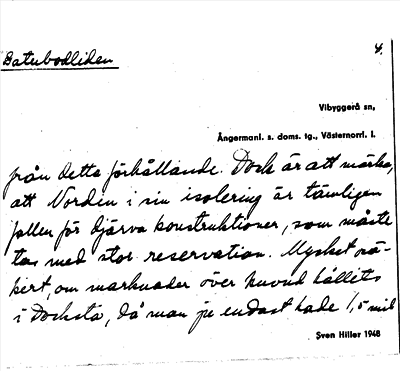 Batubodliden
4.
Vibyggerå sn,
Ångermanl. s. doms. tg., Västernorrl. l.
från detta förhållande. Dock är att märka,
att Nordin i sin isolering är tämligen
fallen för djärva konstruktioner, som måste
tas med stor reservation. Mycket osä-
kert, om marknader över huvud hållits
i Docksta, då man ju endast hade 1,5 mil
Sven Hiller 1948